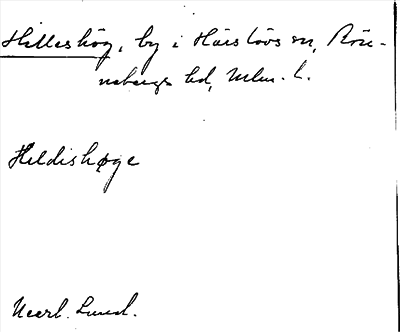 Hilleshög, by i Härslövs sn, Rön-
nebergs hd, Mlm. l.
Hildishøge
Neerl. Lund.